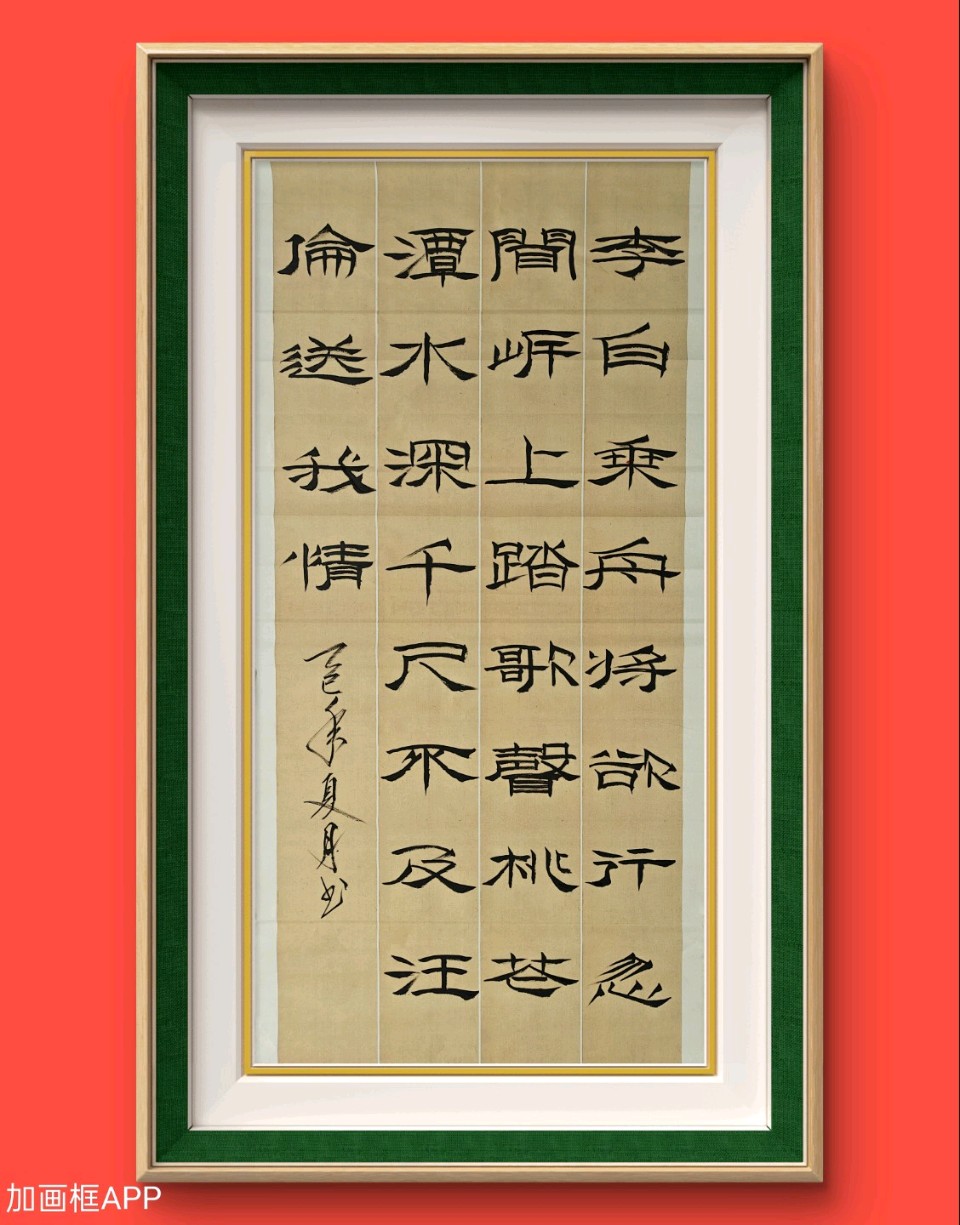 李白乘舟将欲行忽
聞岸上踏歌聲桃花
潭水深千尺不及汪
倫送我情
乙巳年夏月书
加画框APP